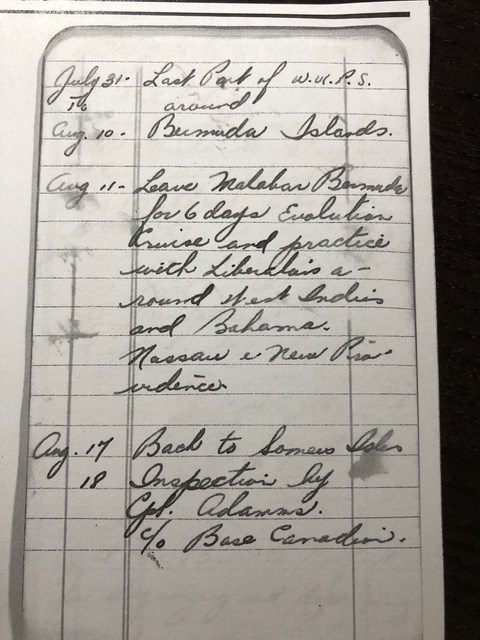 July 31- Last Part of W.U.P.S.
to around
Aug. 10- Bermuda Islands.
Aug 11- Leave Malabar Bermuda
for 6 days Evolution
Cruise and practice
with Liberators a-
round West Indies
and Bahama.
Nassau & New Pro-
vidence
Aug. 17 Back to Somers Isles
18 Inspection by
Cpt. Adamms.
c/o Base Canadian.